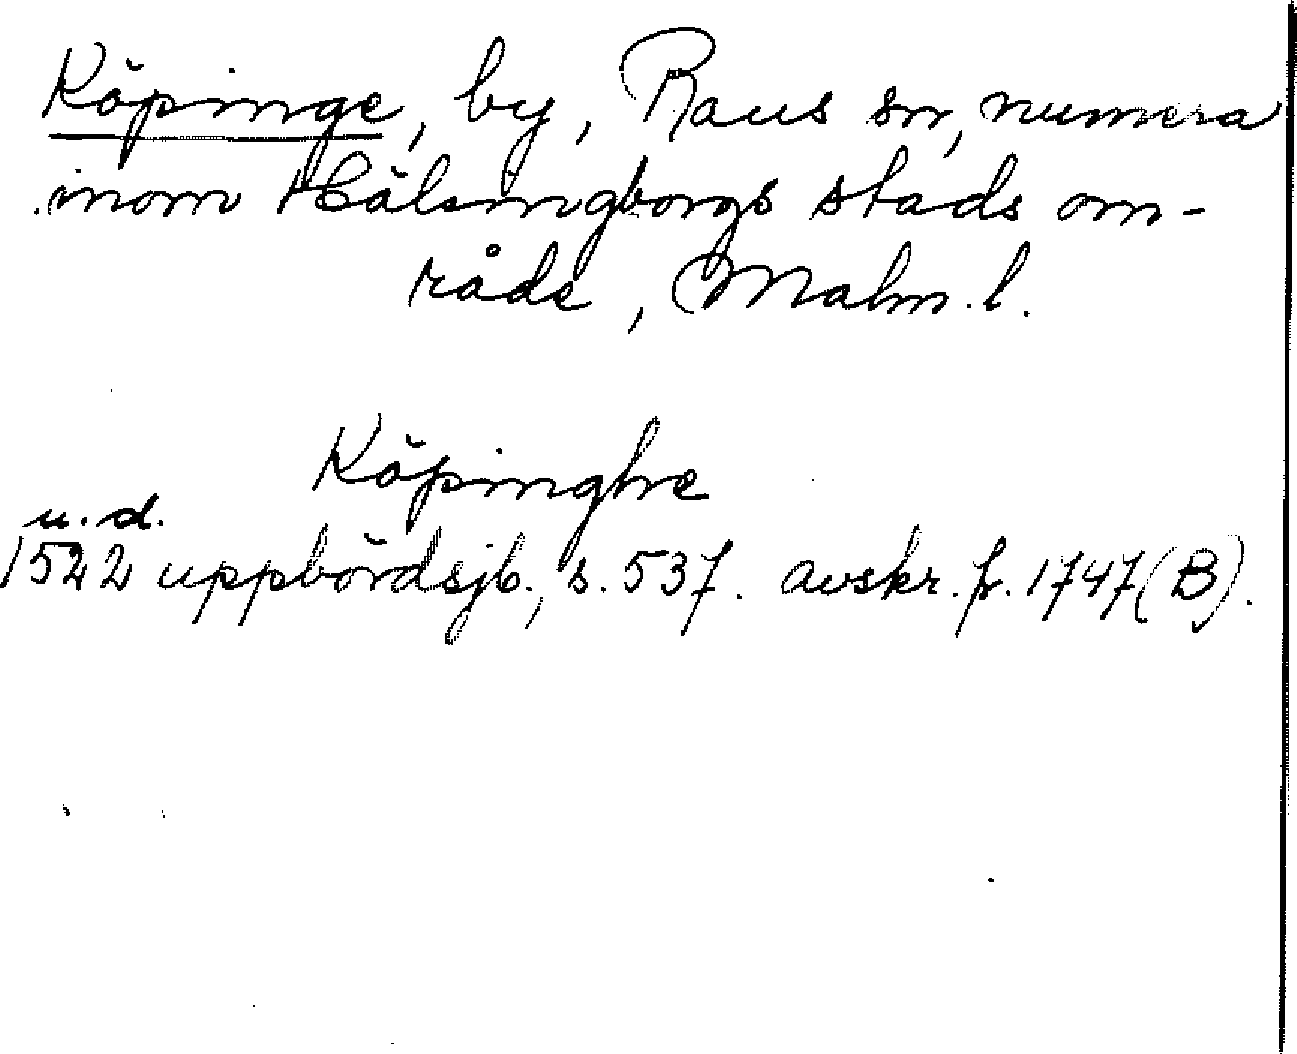 Köpinge, by, Raus sn, numera
inom Hälsingborgs stads om-
råde, Malm. l.
Köpinghe
u. d.
1522 uppbördsjb., s. 537. avskr. fr. 1747 (B).